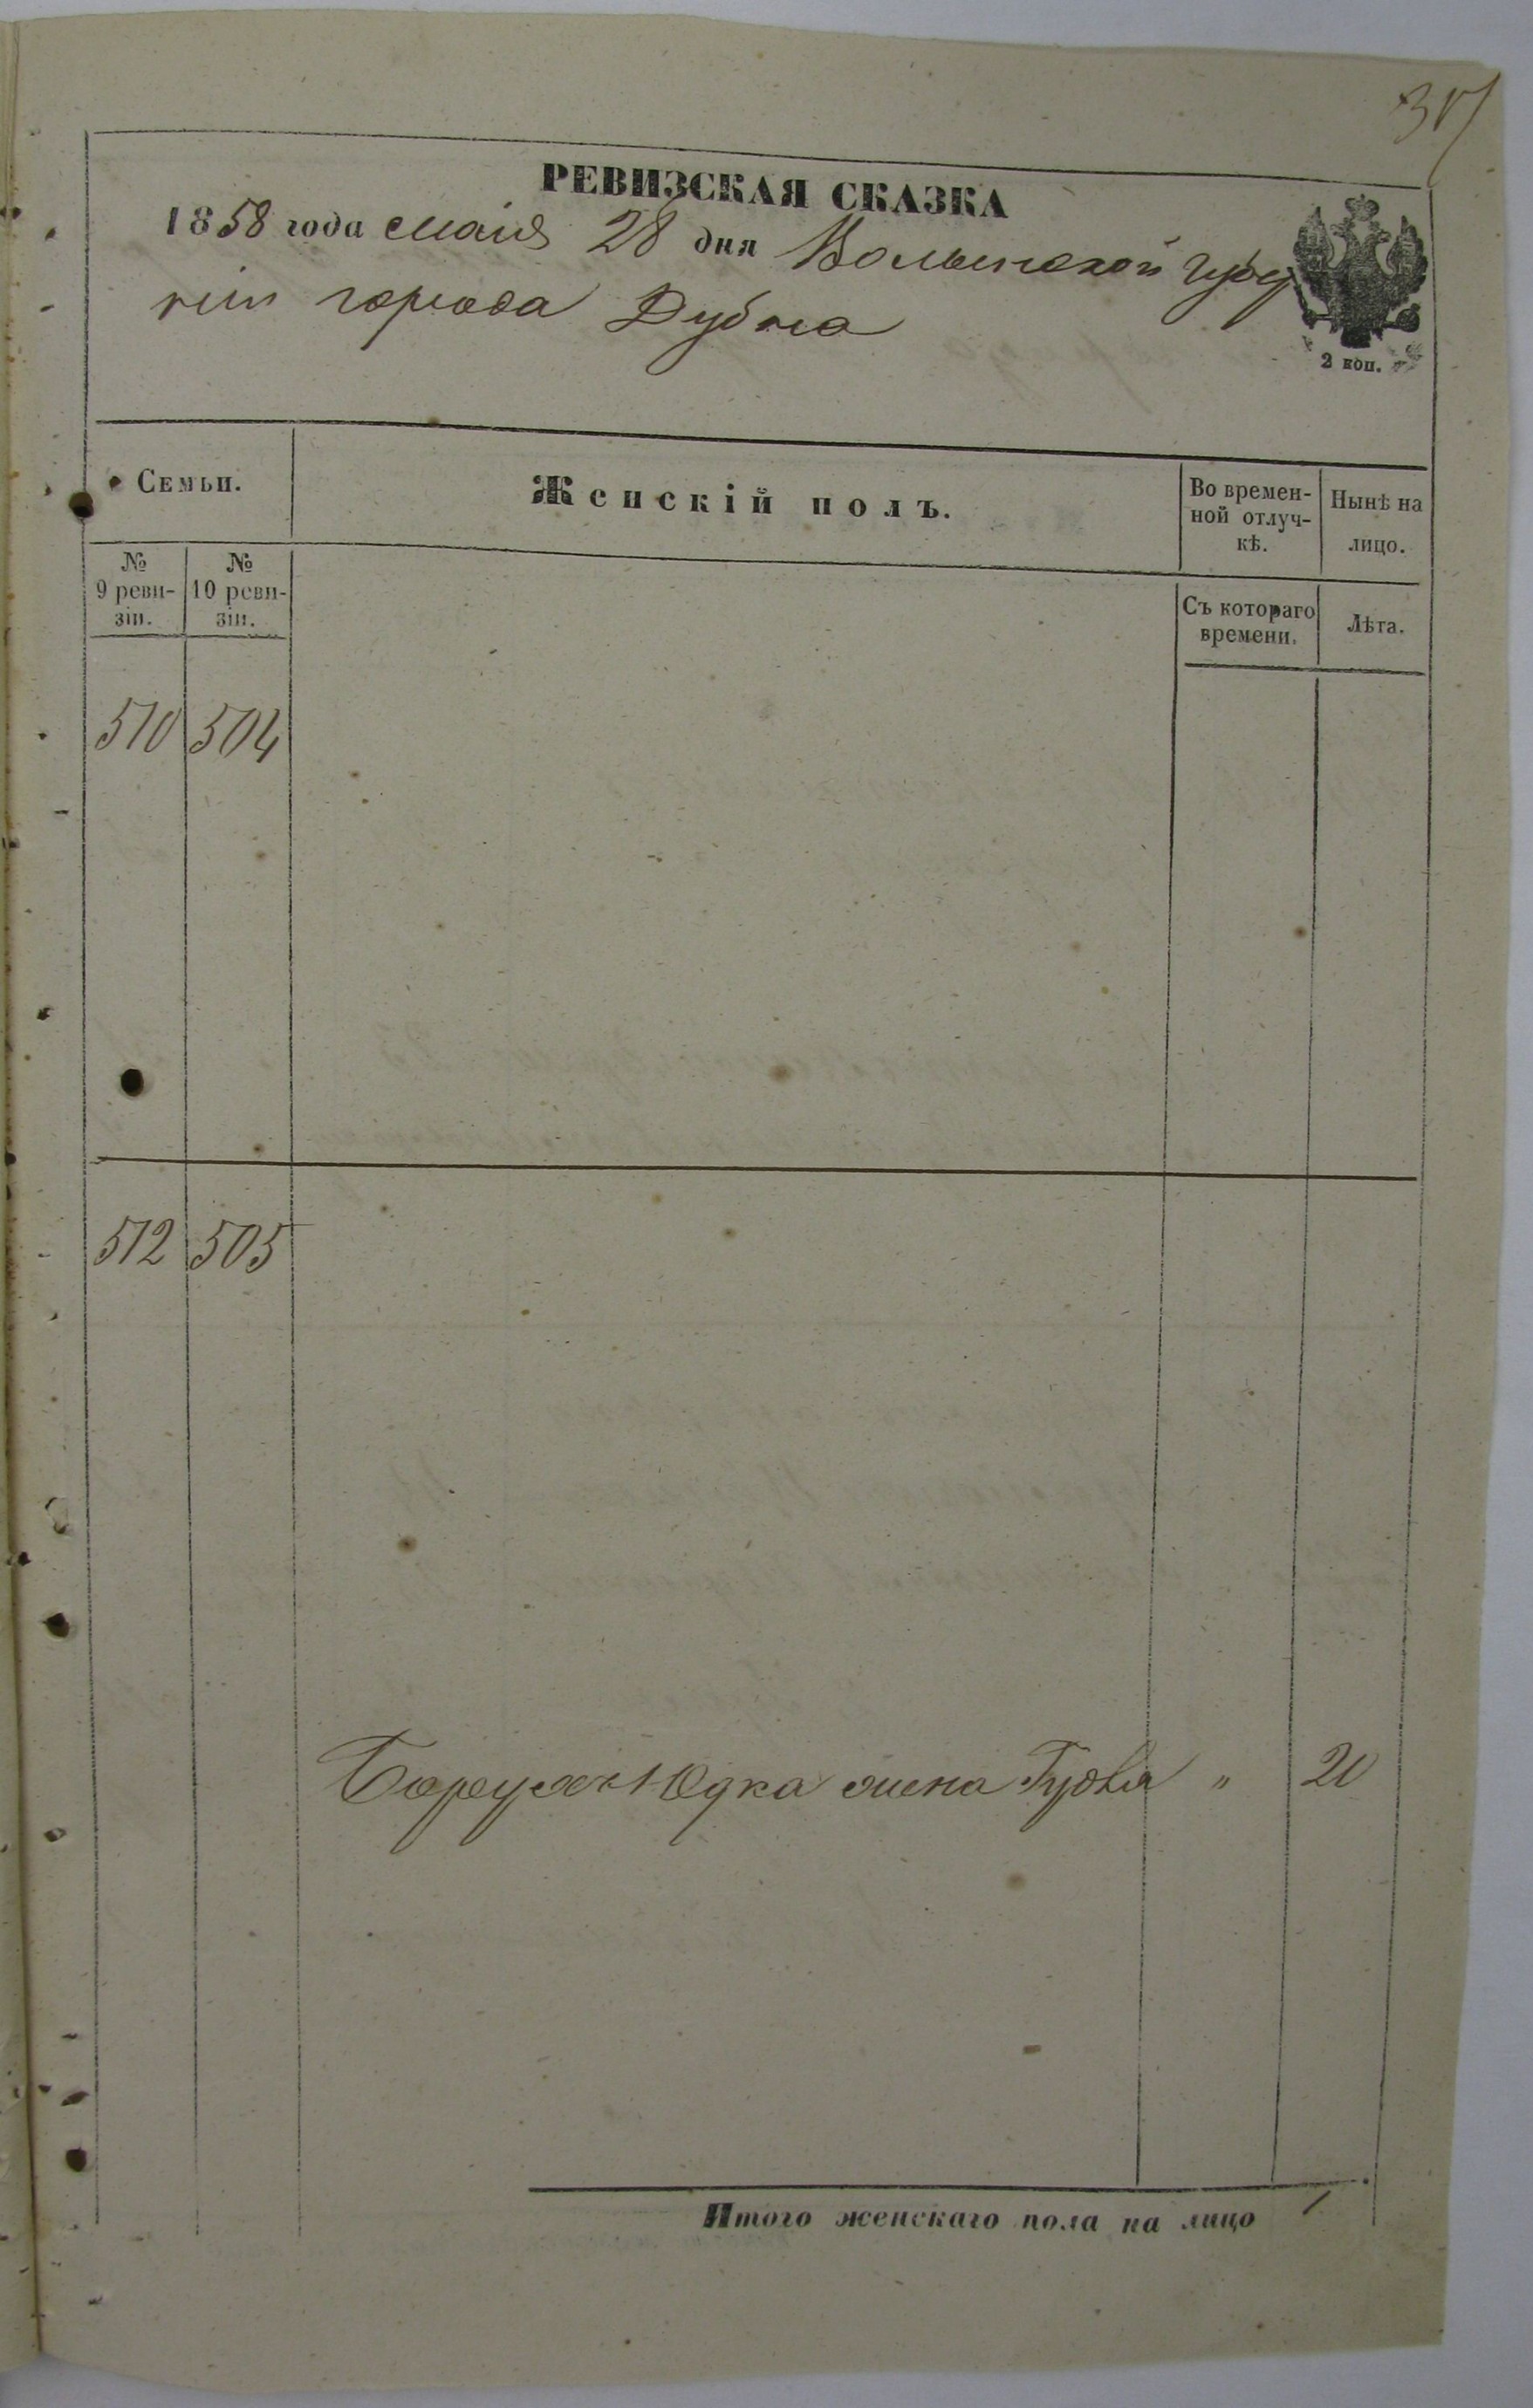 РЕВИЗСКАЯ СКАЗКА
1858 года Маія 28 дня Волынской Губер
ніи города Дубна
2 коп.
Семьи.
Женскій полъ.
Во времен-
ной отлуч-
кѣ.
Нынѣ на
лицо.
№
9 реви-
зіи.
№
10 реви-
зіи.
Съ котораго
времени.
Лѣта.
510 504
512 505
Юдка жена " 20
Итого женскаго пола на лицо 1